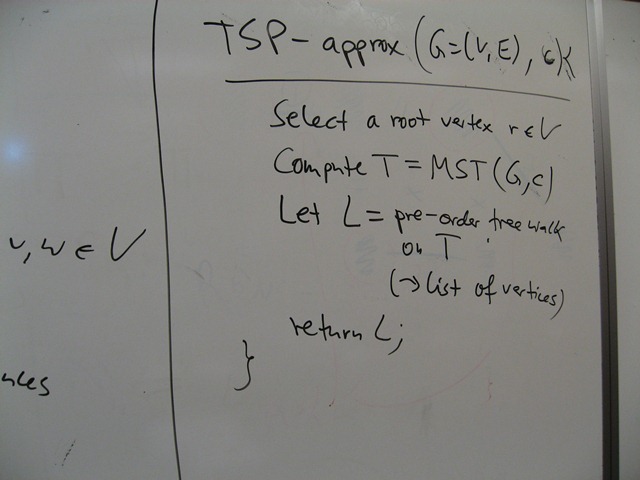 TSP-approx (G=(V,E), c){
Select a root vertex r∈V
Compute T = MST(G,c)
Let L = pre-order tree walk
on T
(→ list of vertices)
return L;
}
v, w ∈ V
nces